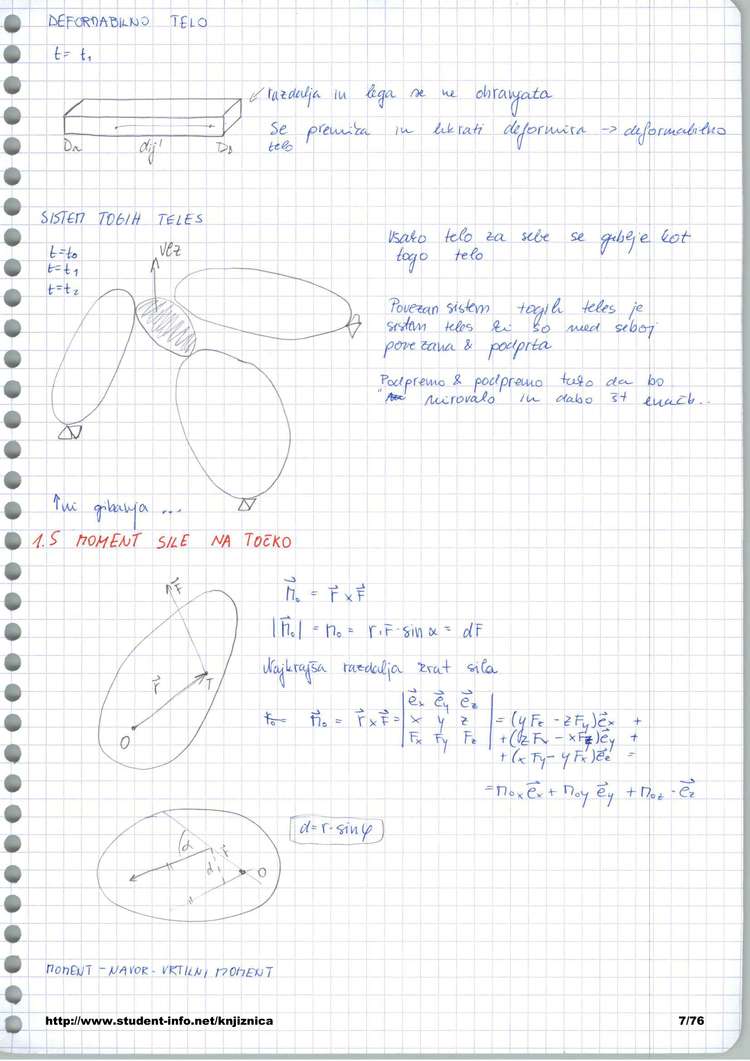 DEFORMABILNO TELO
t = t₁
razdalja in lega se ne ohranjata
Se premika in hkrati deformira → deformabilno
telo
DA dij' DB
SISTEM TOGIH TELES
t=t₀
t=t₁
t=t₂
vez
Vsako telo za sebe se giblje kot
togo telo
Povezan sistem togih teles je
sistem teles ki so med seboj
povezana & podprta
Podpremo & podpremo tako da bo
mirovalo in dabo 3t enačb..
↑ni gibanja ...
1.5 MOMENT SILE NA TOČKO
F⃗
r⃗
T
O
M⃗₀ = r⃗ × F⃗
|M⃗₀| = M₀ = r·F·sin α = dF
Najkrajša razdalja krat sila
M⃗₀ = r⃗ × F⃗ = | e⃗x e⃗y e⃗z |
| x y z | = (yFz - zFy)e⃗x +
| Fx Fy Fz | +(zFx - xFz)e⃗y +
+(xFy - yFx)e⃗z =
= M₀x e⃗x + M₀y e⃗y + M₀z · e⃗z
d = r · sin φ
α
r⃗
d
O
MOMENT - NAVOR - VRTILNI MOMENT
http://www.student-info.net/knjiznica
7/76